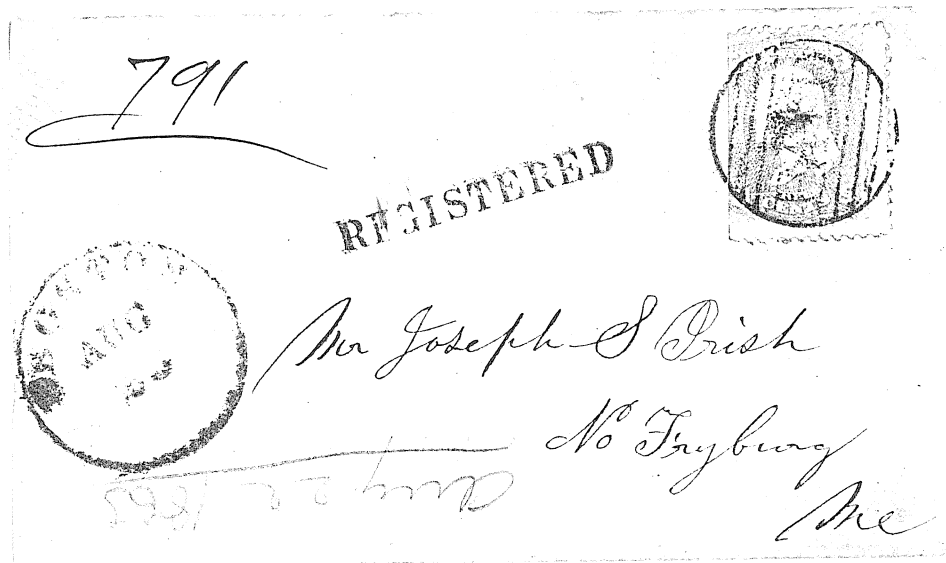 791
REGISTERED
BOSTON
AUG
Mr Joseph S Irish
No Fryburg
Me
Aug 22 1865